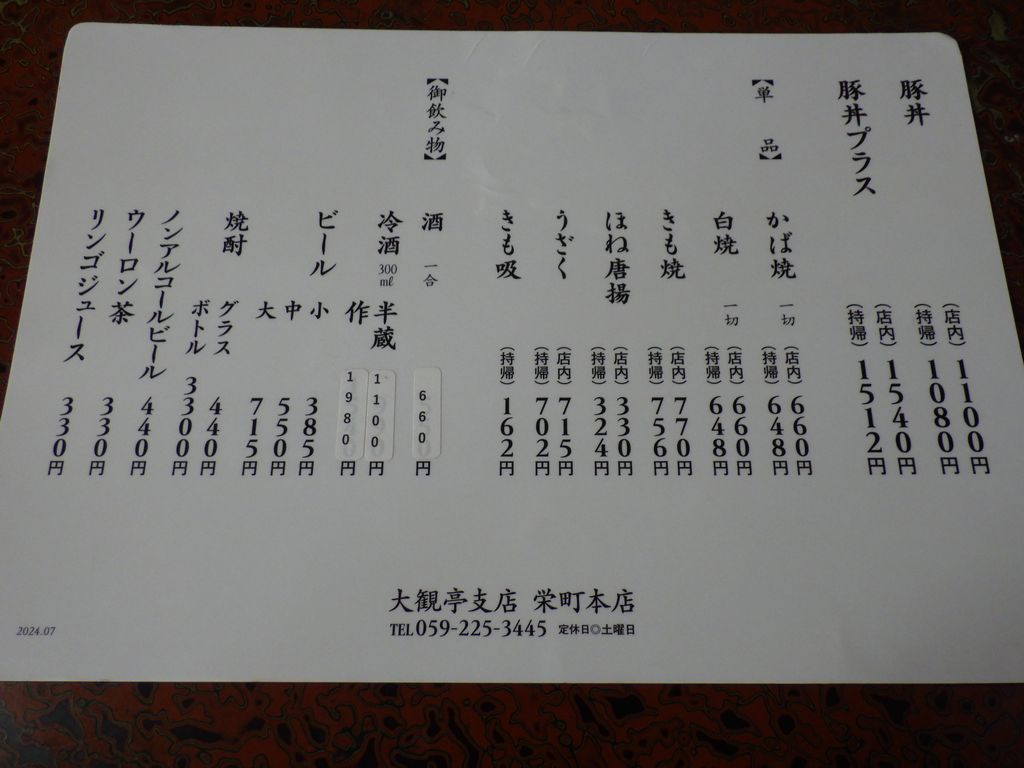 豚丼 (店内)1100円
(持帰)1080円
豚丼プラス (店内)1540円
(持帰)1512円
【単品】
かば焼 一切 (店内)660円
(持帰)648円
白焼 一切 (店内)660円
(持帰)648円
きも焼 (店内)770円
(持帰)756円
ほね唐揚 (店内)330円
(持帰)324円
うざく (店内)715円
(持帰)702円
きも吸 (持帰)162円
【御飲み物】
酒 一合 660円
冷酒 300㎖ 半蔵 1100円
作 1980円
ビール 小 385円
中 550円
大 715円
焼酎 グラス 440円
ボトル 3300円
ノンアルコールビール 440円
ウーロン茶 330円
リンゴジュース 330円
大観亭支店 栄町本店
TEL059-225-3445 定休日◎土曜日
2024.07